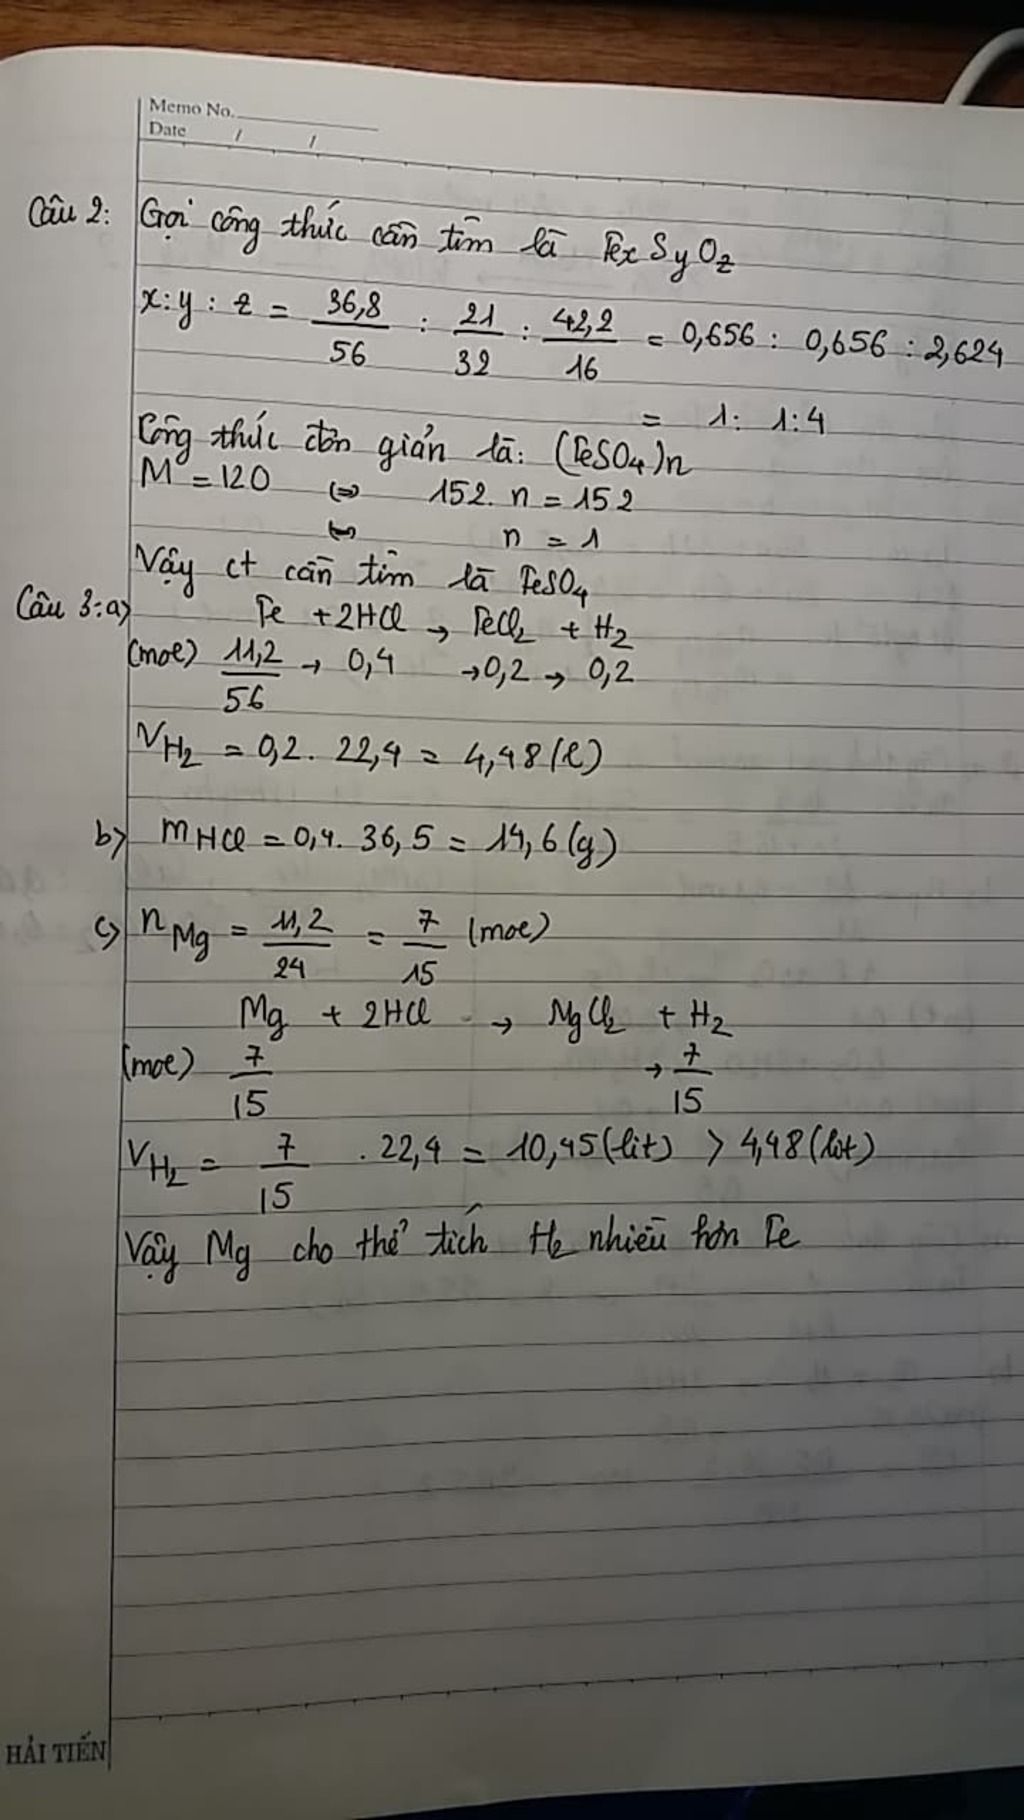 Memo No.
Date / /
Câu 2: Gọi công thức cần tìm là FexSyOz
x:y:z = 36,8/56 : 21/32 : 42,2/16 = 0,656 : 0,656 : 2,624
= 1: 1:4
Công thức đơn giản là: (FeSO4)n
M = 120 <=> 152. n = 152
<=> n = 1
Vậy ct cần tìm là FeSO4
Câu 3: a) Fe + 2HCl → FeCl2 + H2
(mol) 11,2/56 → 0,4 → 0,2 → 0,2
VH2 = 0,2. 22,4 = 4,48 (l)
b) mHCl = 0,4. 36,5 = 14,6 (g)
c) nMg = 11,2/24 = 7/15 (mol)
Mg + 2HCl → MgCl2 + H2
(mol) 7/15 → 7/15
VH2 = 7/15 . 22,4 = 10,45 (lít) > 4,48 (lít)
Vậy Mg cho thể tích H2 nhiều hơn Fe
HẢI TIẾN